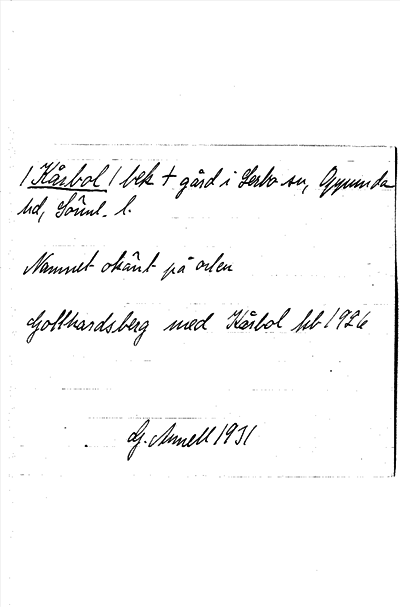 / Kårbol / bek † gård i Lerbo sn, Oppunda
hd, Söml. l.
Namnet okänt på orten
Gotthardsberg med Kårbol kb 1926
G. Annell 1931